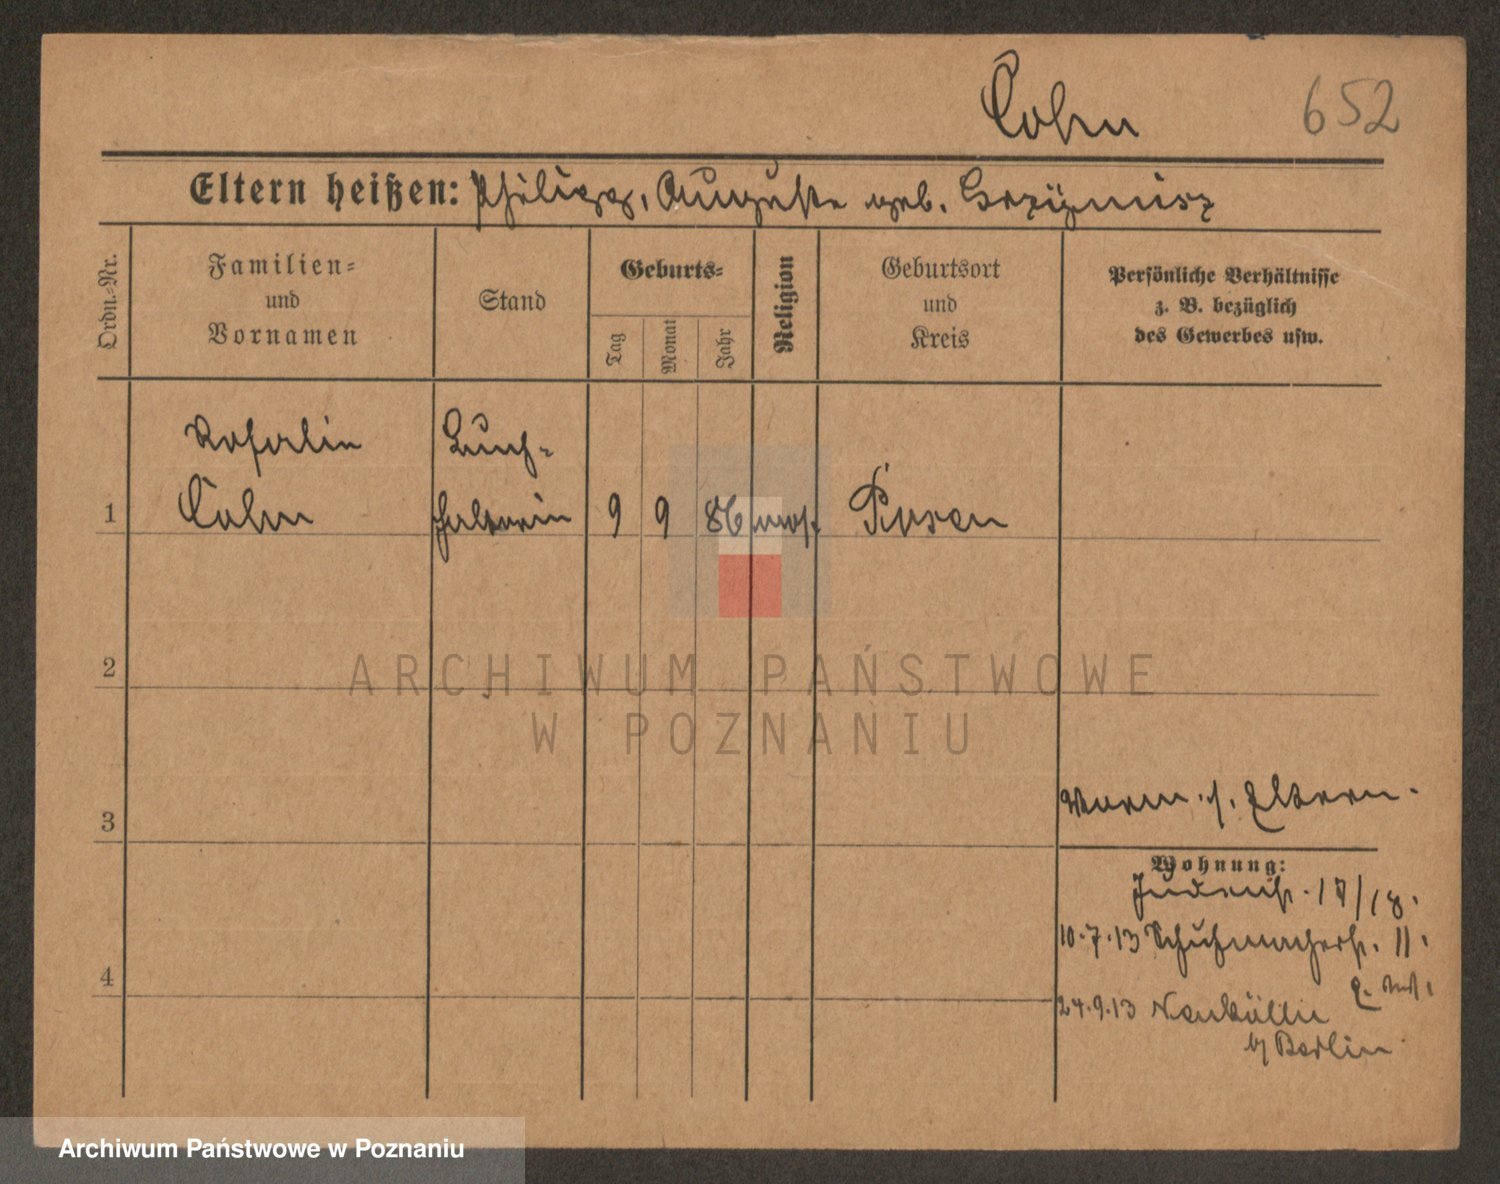 Cohn 652
Eltern heißen: Philipp, Auguste geb.
Ordn.-Nr.
Familien-
und
Vornamen
Stand
Geburts-
Tag
Monat
Jahr
Religion
Geburtsort
und
Kreis
Persönliche Verhältnisse
z. B. bezüglich
des Gewerbes usw.
Rosalie Buch-
1 Cohn halterin 9 9 86 mos. Posen
2
ARCHIWUM PAŃSTWOWE
W POZNANIU
3
s. Eltern.
Wohnung:
Judenstr. 17/18.
10.7.13 Schuhmacherstr. 11.
4
24.9.13 Neukölln
b/ Berlin
Archiwum Państwowe w Poznaniu